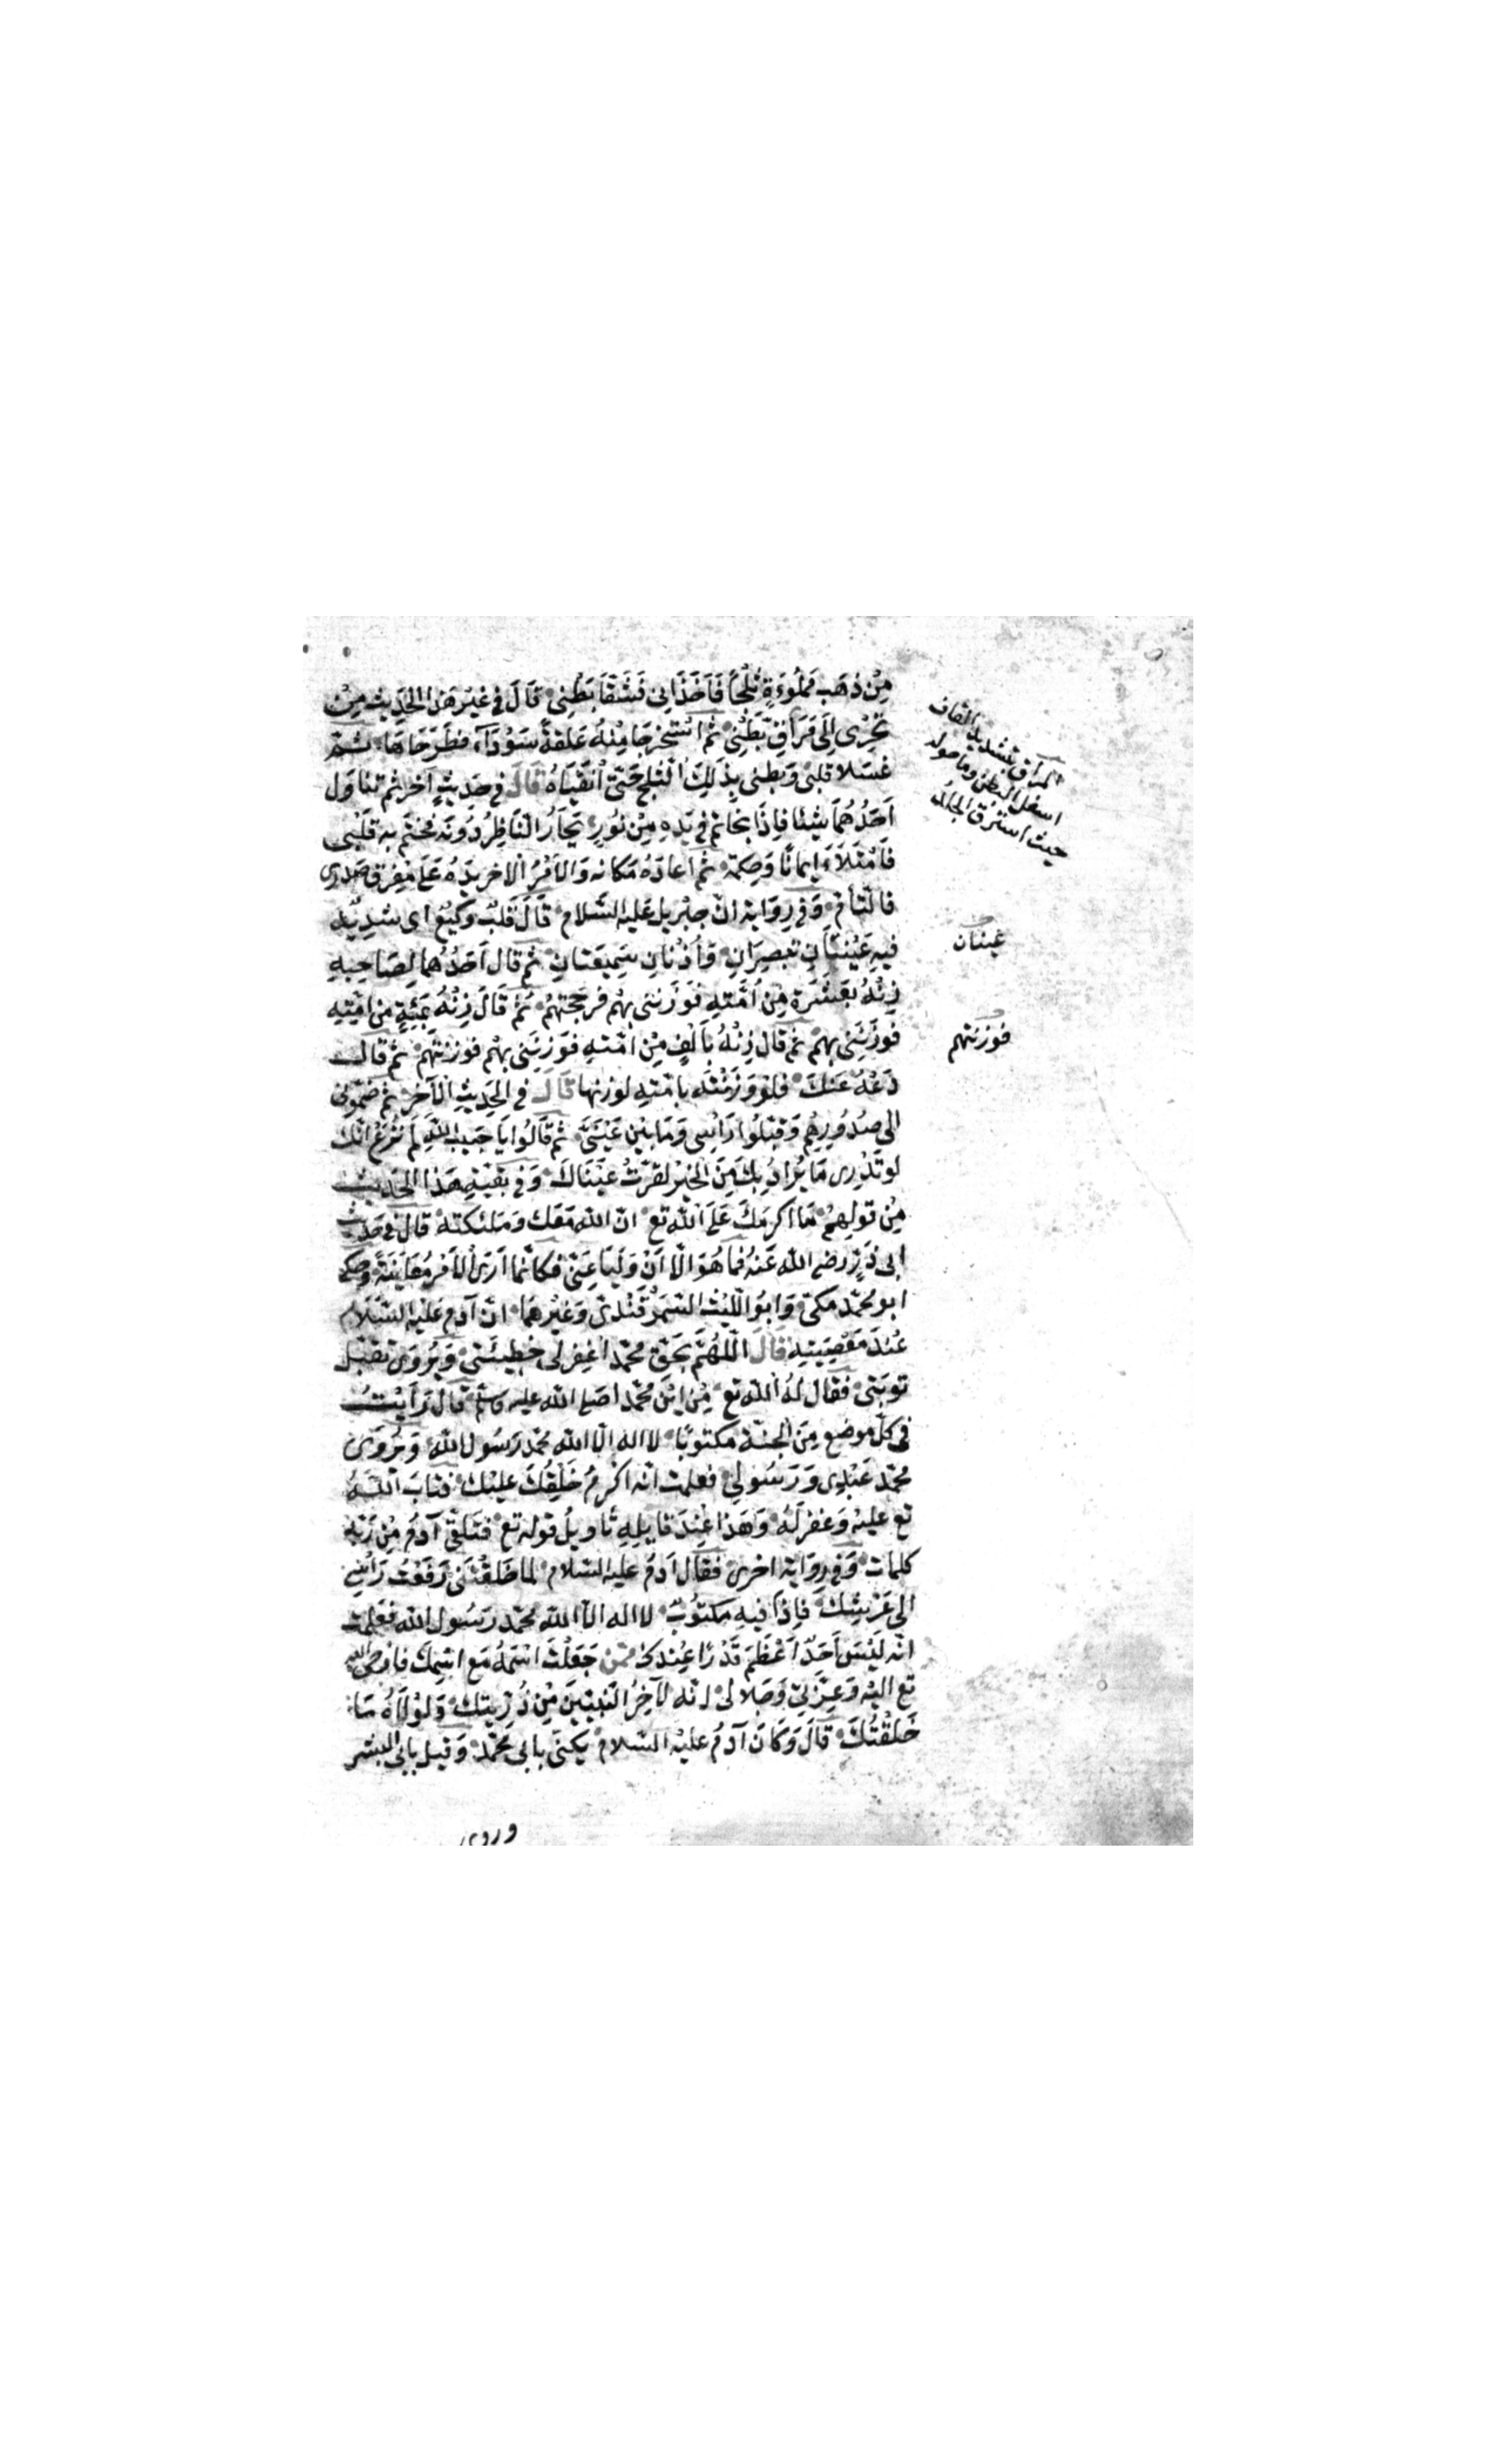 مِنْ ذَهَبٍ مَمْلُوءَةٍ ثَلْجًا فَاَخَذَانِى فَشَقَّا بَطْنِى قَالَ فِى غَيْرِ هَذَا الْحَدِيثِ مِنْ
نَحْرِى اِلَى مَرَاقِّ بَطْنِى ثم اسْتَخْرَجَا مِنْهُ عَلَقَةً سَوْدَآءَ فطَرَحَاهَا ثم
غَسَلا قلبى وَبطنى بِذَلِكَ الثَّلْجِ حَتّى اَنْقَيَاهُ قَالَ فى حَدِيثٍ آخر ثم تناوَل
اَحَدُهُمَا شَيْئا فِاذَا بخَاتَم فى يَدِهِ مِنْ نُورٍ يَحَارُ النَّاظِرُ دُونَه فختم بِه قَلْبِى
فَامْتَلَاَ اِيمَانًا وَحِكمة ثم اعَادَهُ مَكانه وَامَرَّ الاخر يَدَهُ عَلَى مَفْرِقِ صَدْرِى
فالتأم وَفى رِوَايَة انّ جِبْرِيل عَليه السَّلام قَالَ قَلْبٌ وَكِيْعٌ اى شَدِيْد
فيهِ عَيْنَانِ تبصِرَانِ وَاُذْنَانِ سَمِيْعَتَانِ ثم قال اَحَدُهما لِصَاحِبِهِ
زِنْهُ بِعَشَرَة مِنْ اُمَّتِهِ فَوَزَنَنى بِهْم فرجحتهُمْ ثمّ قَالَ زِنْهُ بِمِئَةٍ من امّتِهِ
فوَزَنَنِى بهِمْ ثم قال زِنْهُ بِاَلْفٍ مِنْ امّتهِ فَوَزَنَنِى بِهْم فوزنتهم ثم قال
دَعْهُ عَنكَ فلوْ وَزَنْتَه بامّتهِ لوزنها قَالَ فى الحَدِيثِ الآخَر ثم ضَمّونى
الى صُدُورِهِم وَقبّلوا رَاْسِى وَمَا بيْن عَيْنَىَّ ثم قَالُوا يَا حَبِيبَ اللهِ لم تُرَعْ انّك
لو تَدْرِى مَا يُرَادُ بِكَ مِنَ الْخَيْرِ لقرّتْ عَيْنَاكَ وَفى بَقيّةِ هَذَا الحَدِيث
مِنْ قولِهِمْ مَا اكرمَكَ عَلَى اللهِ تع انّ الله مَعَك وَمَلئكته قال فى حَدِيث
ابى ذَرٍّ رضى الله عَنْهُ فما هُوَ الّا اَنْ وَلّيَا عَنّى فكانّما اَرَى الاَمْرَ مُعَايَنَةً وَحكى
ابو محمّد مَكىّ وَابُو اللّيْث السّمَرْقَنْدىّ وَغيْرُهُمَا انّ آدم عَليْه السَّلام
عنْدَ مَعْصِيَتِهِ قَالَ اللّهُمّ بحَقّ محمّد اغْفِر لى خطِيْئَتى وَيُرْوَى تقبّل
توبَتى فقال لَهُ الله تع مِنْ ايْنَ محمّد صلى الله عليه وسلم قال رَاَيْتُ
فى كلّ موضِعٍ مِنَ الجنّة مكتوبًا لا اله الّا الله محمّد رَسُول الله وَيُرْوَى
محمّد عَبْدِى وَرَسُولى فعلمت انّه اكْرمُ خَلْقِكَ عليْك فتابَ اللهُ
تع عليْه وَغفر لَهُ وَهَذا عِنْدَ قايلِهِ تاويلُ قوله تع فتلقّى آدم مِنْ ربّه
كلمات وَفى رِوَاية اخرى فقال آدمُ عليه السّلام لما خلقْتَنى رَفعْتُ رَاْسِى
الى عَرْشِكَ فاذا فيه مكتوبٌ لا اله الّا الله محمّد رَسُول الله فعَلِمت
انّه لَيْسَ اَحَدٌ اَعْظمَ قَدْرًا عِنْدكَ ممّن جَعَلْتَ اسْمَهُ مَع اسْمِكَ فاوحى الله
تع اليْه وَعِزّتى وَجَلالى انّه لآخِرُ النّبِيّيْنَ مِنْ ذُرّيتك وَلوْلاهُ مَا
خَلقْتُكَ قالَ وَكانَ آدمُ عليْه السّلام يكنى بابى محمّد وَقيل بابى البَشر
وروى
المراق بتشديد القاف
اسفل البطن وما حوله
حيث استرق الجلد
عينان
فوزنتهم